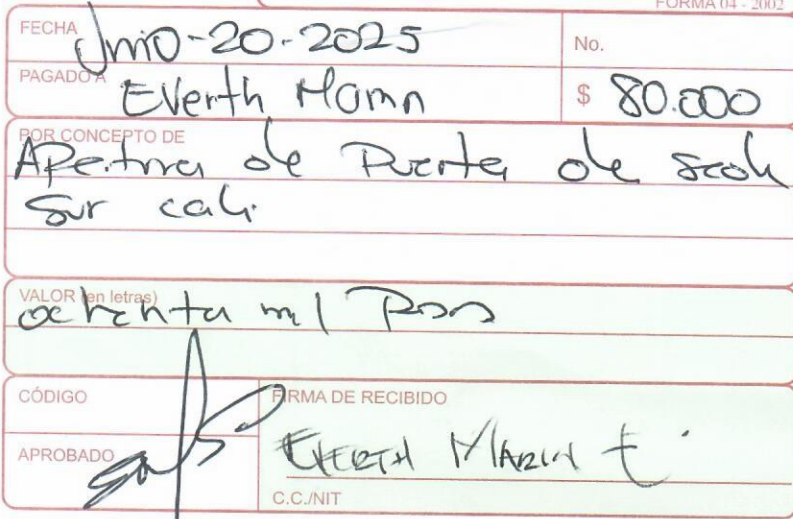 FORMA 04 - 2002
FECHA Junio-20-2025
No.
PAGADO A Everth Marin
$ 80.000
POR CONCEPTO DE
Apertura de Puerta de sede
Sur cali
VALOR (en letras)
ochenta mil Pesos
CÓDIGO
FIRMA DE RECIBIDO
APROBADO
EVERTH MARIN E.
C.C./NIT